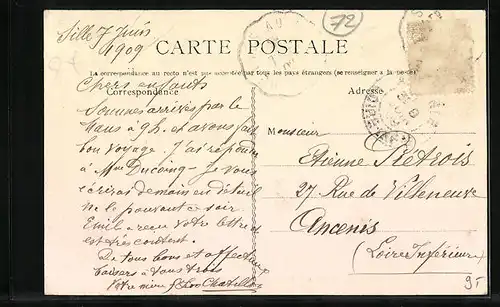 Sillé 7 Juin
1909
72
CARTE POSTALE
La correspondance au recto n'est pas acceptée par tous les pays étrangers (se renseigner à la poste)
Correspondance
Adresse
Chers enfants
Sommes arrivés par le
Mans à 9 h. et avons fait
bon voyage. J'ai répondu
à Mme Ducoing - Je vous
écrirai demain en détail
ne le pouvant ce soir.
Emile a reçu votre lettre et
est très content.
De tous bons et affectueux
baisers à vous trois
Votre mère
Monsieur
Etienne
27 Rue de Villeneuve
Ancenis
(Loire Inférieure)
9F